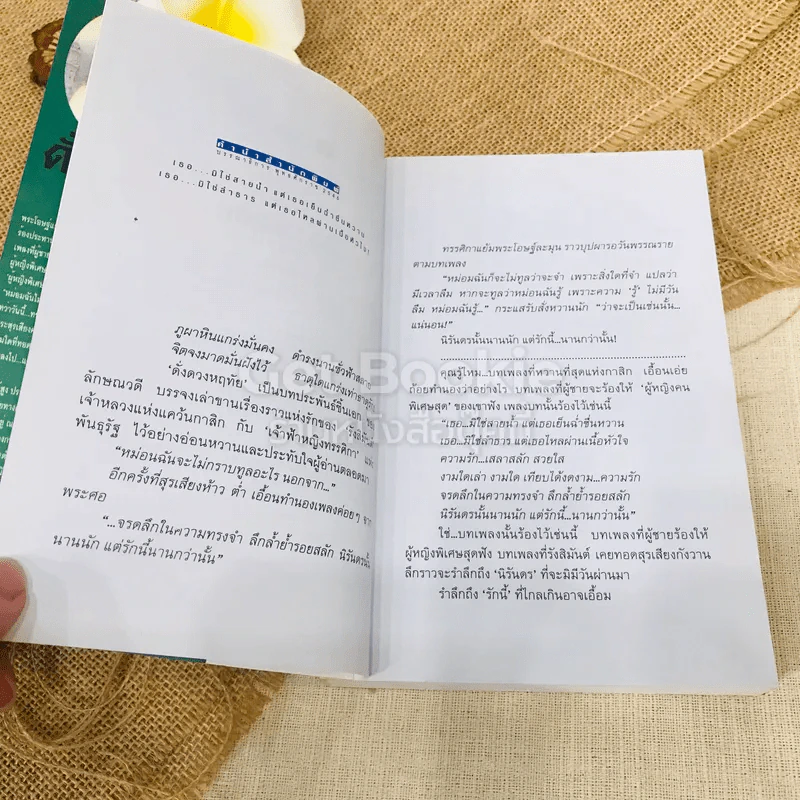 คำนำสำนักพิมพ์
เธอ...มิใช่สายน้ำ แต่เธอเย็นฉ่ำชื่นหวาน
เธอ...มิใช่ลำธาร แต่เธอไหลผ่านเนื้อหัวใจ!
ภูผาหินแกร่งมั่นคง ดำรงนานชั่วฟ้า
จิตจงมาดมั่นฝังไว้ ธาตุใดแกร่งเท่า
'ดั่งดวงหฤทัย' เป็นบทประพันธ์ชิ้นเอก
ลักษณวดี บรรจงเล่าขานเรื่องราวแห่งรักของ
เจ้าหลวงแห่งแคว้นกาสิก กับ 'เจ้าฟ้าหญิงทรรศิกา' แห่ง
พันธุรัฐ ไว้อย่างอ่อนหวานและประทับใจผู้อ่านตลอดมา
"หม่อนฉันจะไม่กราบทูลอะไร นอกจาก..."
อีกครั้งที่สุรเสียงห้าว ต่ำ เอื้อนทำนองเพลงค่อยๆ จาก
พระศอ
"...จรดลึกในความทรงจำ ลึกล้ำย้ำรอยสลัก นิรันดรนั้น
นานนัก แต่รักนี้นานกว่านั้น"
ทรรศิกาแย้มพระโอษฐ์ละมุน ราวบุปผารอวันพรรณราย
ตามบทเพลง
"หม่อมฉันก็จะไม่ทูลว่าจะจำ เพราะสิ่งใดที่จำ แปลว่า
มีเวลาลืม หากจะทูลว่าหม่อนฉันรู้ เพราะความ 'รู้' ไม่มีวัน
ลืม หม่อมฉันรู้..." กระแสรับสั่งหวานนัก "ว่าจะเป็นเช่นนั้น...
แน่นอน!"
นิรันดรนั้นนานนัก แต่รักนี้...นานกว่านั้น!
คุณรู้ไหม...บทเพลงที่หวานที่สุดแห่งกาสิก เอื้อนเอ่ย
ถ้อยทำนองว่าอย่างไร บทเพลงที่ผู้ชายจะร้องให้ 'ผู้หญิงคน
พิเศษสุด' ของเขาฟัง เพลงบทนั้นร้องไว้เช่นนี้
"เธอ...มิใช่สายน้ำ แต่เธอเย็นฉ่ำชื่นหวาน
เธอ...มิใช่ลำธาร แต่เธอไหลผ่านเนื้อหัวใจ
ความรัก...เสลาสลัก สวยใส
งามใดเล่า งามใด เทียบได้งดงาม...ความรัก
จรดลึกในความทรงจำ ลึกล้ำย้ำรอยสลัก
นิรันดรนั้นนานนัก แต่รักนี้...นานกว่านั้น"
ใช่...บทเพลงนั้นร้องไว้เช่นนี้ บทเพลงที่ผู้ชายร้องให้
ผู้หญิงพิเศษสุดฟัง บทเพลงที่รังสิมันต์ เคยทอดสุรเสียงกังวาน
ลึกราวจะรำลึกถึง 'นิรันดร' ที่จะมิมีวันผ่านมา
รำลึกถึง 'รักนี้' ที่ไกลเกินอาจเอื้อม